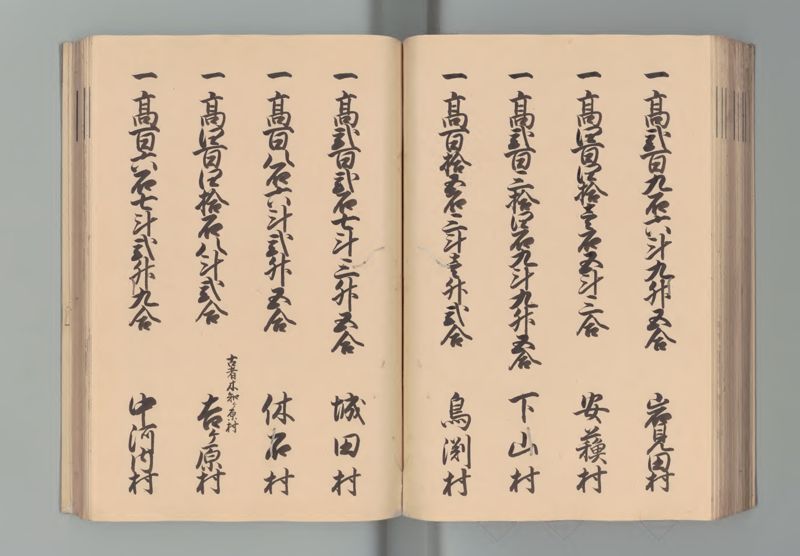 一高弐百九石六斗九升五合 岩見田村
一高四百四拾壱石五斗二合 安蘓村
一高弐百三拾四石九斗九升五合 下山村
一高百拾五石三斗壱升弐合 鳥渕村
一高弐百弐石七斗三升五合 城田村
一高百八石六斗弐升五合 休石村
古者木知ヶ原村
一高四百四拾石八斗弐合 吉ヶ原村
一高百六石七斗弐升九合 中河内村